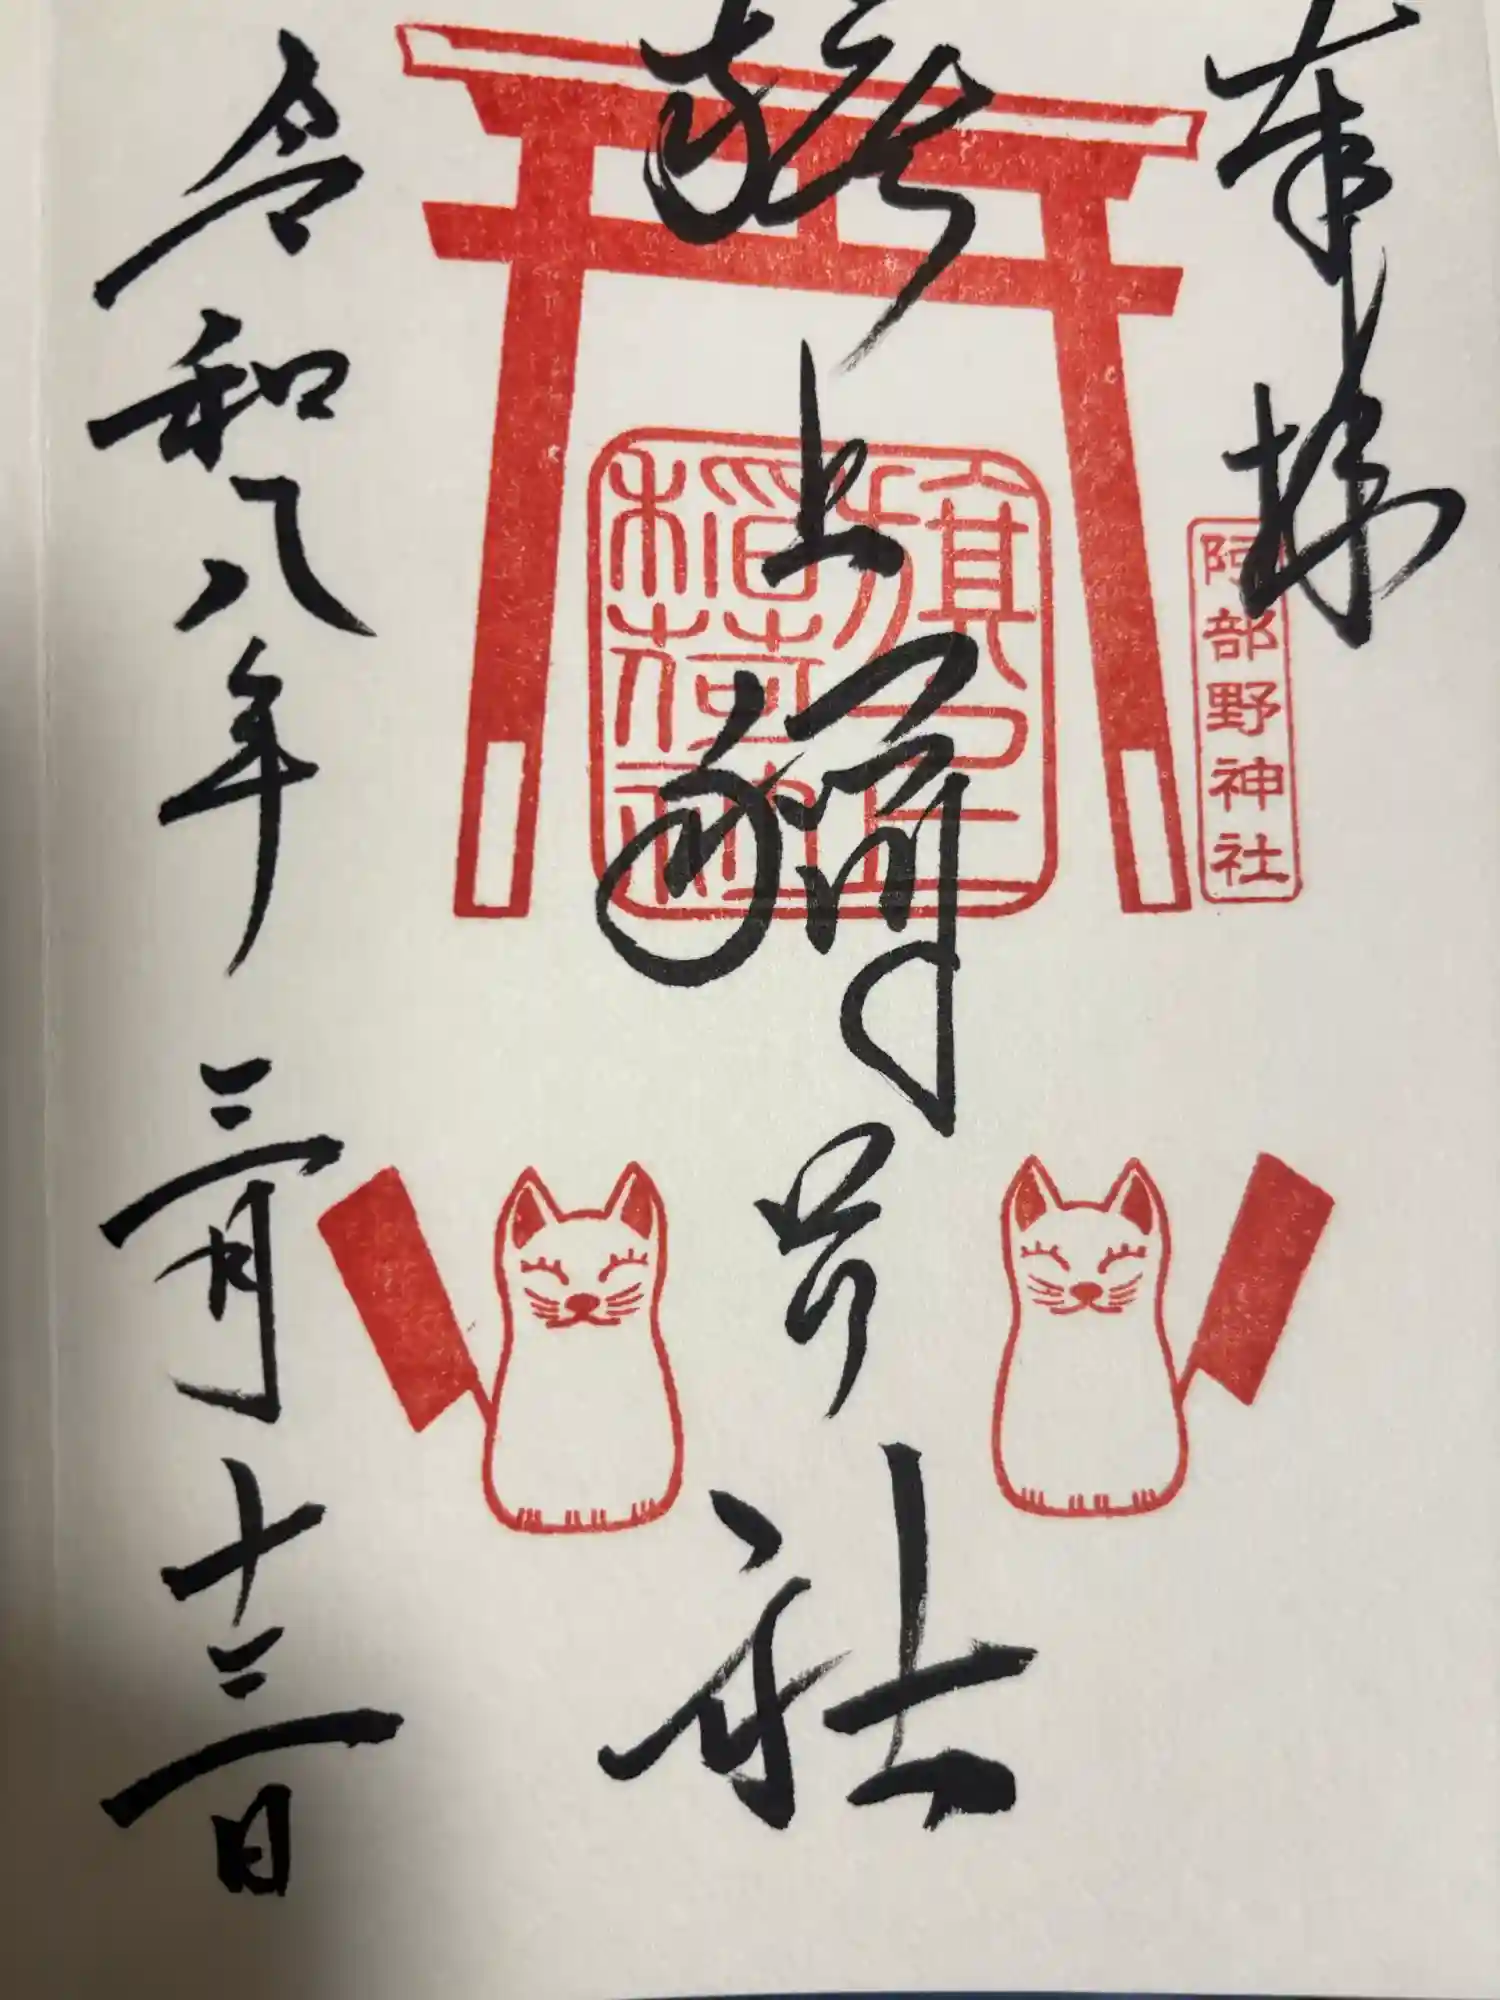 奉拝
阿部野神社
旗上稲荷社
令和八年三月十三日